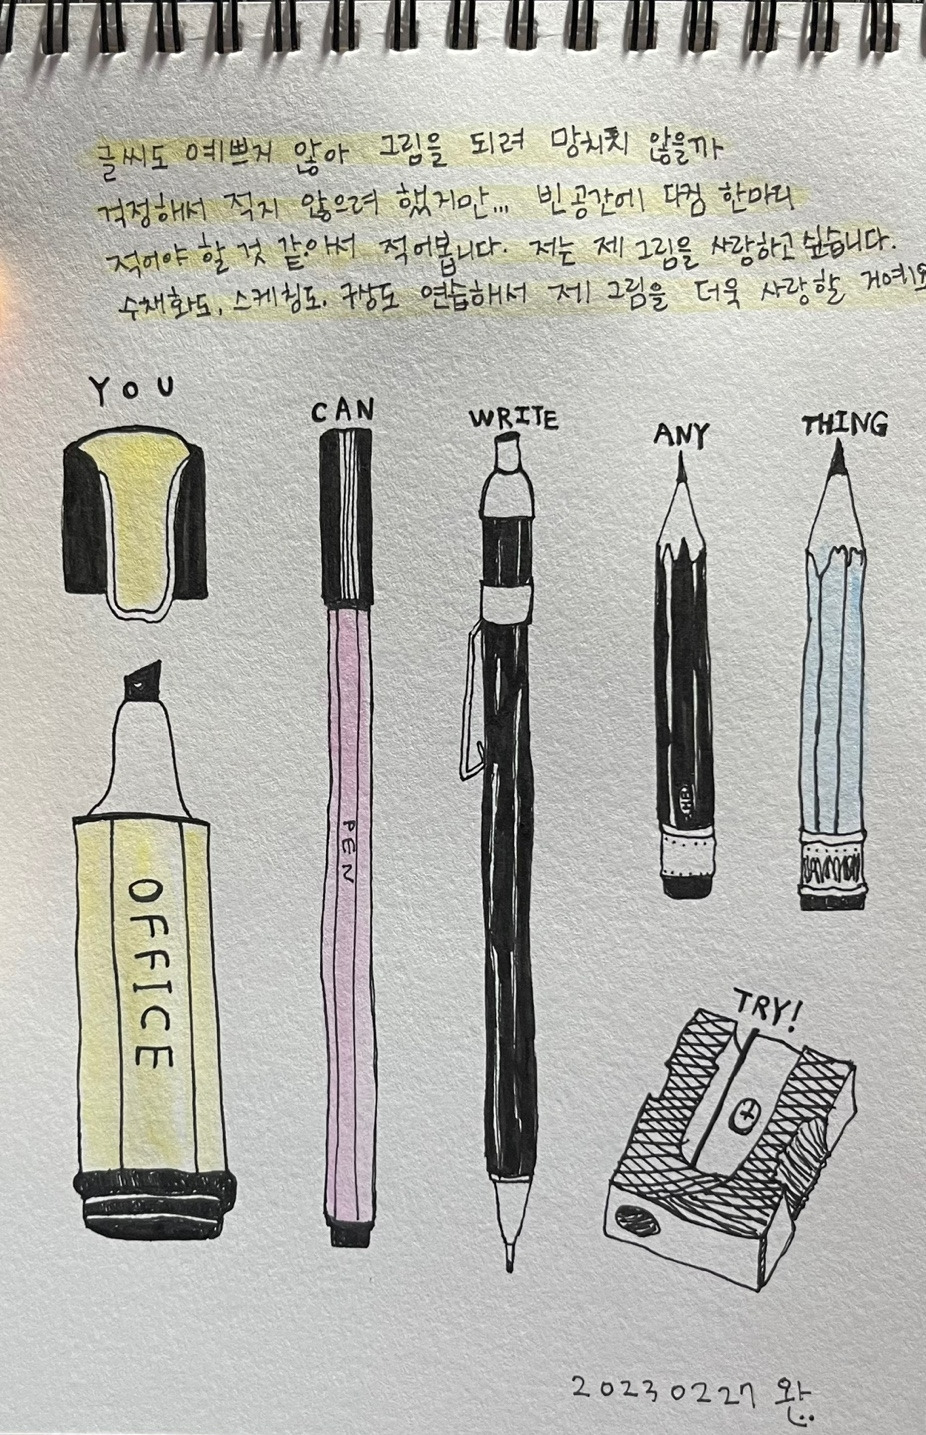 글씨도 예쁘지 않아 그림을 되려 망치지 않을까
걱정해서 적지 않으려 했지만... 빈공간에 다컴 한마디
적어야 할 것 같아서 적어봅니다. 저는 제 그림을 사랑하고 싶습니다.
수채화도, 스케칭도, 구상도 연습해서 제 그림을 더욱 사랑할 거예요
YOU
CAN
WRITE
ANY
THING
PEN
HB
OFFICE
TRY!
20230227 완